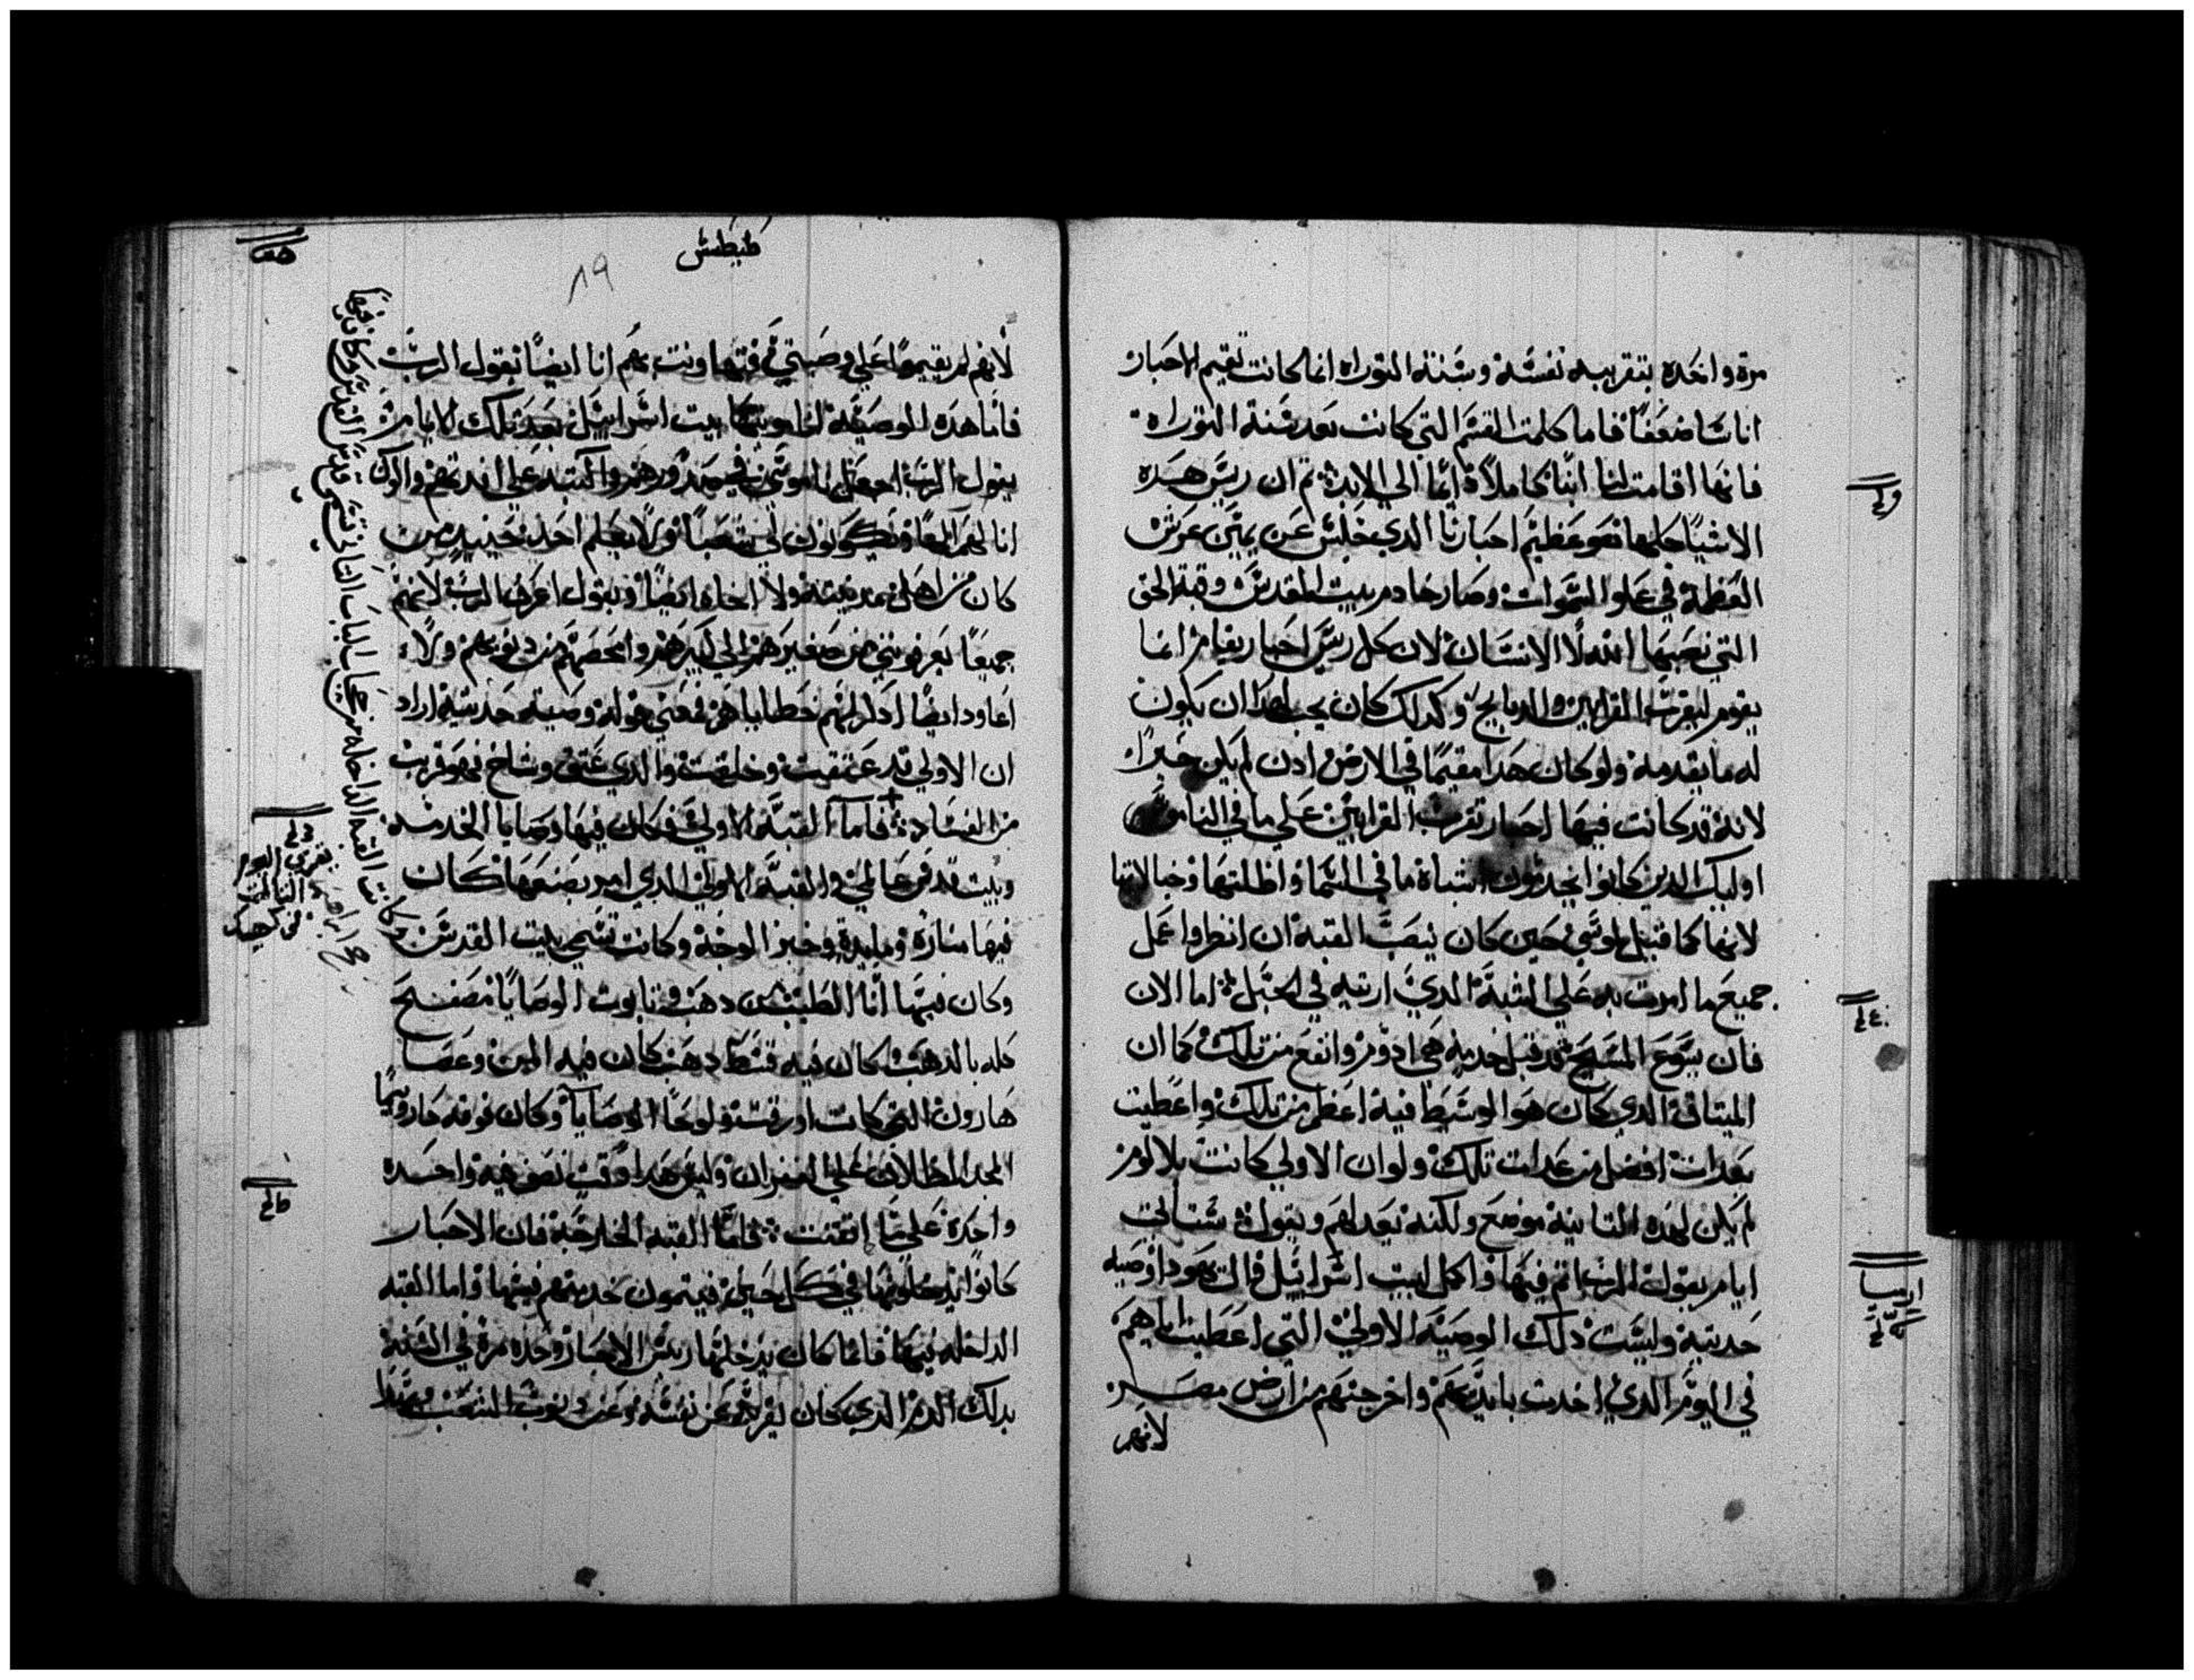 مرة واحده بتقريبه نفسه وسنة التوراه انما كانت تقيم الاحبار
اناسا ضعفا فاما كلمت القسم التي كانت بعد سنة التوراه
فانها اقامت لنا ابنا كاملا دايما الي الابد ثم ان ريس هده
الاشيا كلها فهو عظيم احبارنا الدي جلس عن يمين عرش
العظمة في علو السموات وصار خادم بيت المقدس وقبة الحق
التي نصبها الله لا الانسان لان كل ريس احبار يقام انما
يقوم ليقرب القرابين والدبايح وكدلك كان يجب لهدا ان يكون
له ما يقدمه ولو كان هدا مقيما في الارض ادن لم يكن حبرا
لانه قد كانت فيها احبار تقرب القرابين علي ما في الناموس
اوليك الدين كانوا يخدمون اشباه ما في السما واظلتها وخيالاتها
لانها كما قيل لموسي حين كان ينصب القبه ان انظر واعمل
جميع ما امرت به علي الشبه الدي اريته في الجبل اما الان
فان يسوع المسيح قد قبل خدمة هي ادوم وانفع من تلك كما ان
الميتاق الدي كان هو الوسيط فيه اعظم من تلك واعطيت
بعدات افضل من عدات تلك ولو ان الاولي كانت بلا لوم
لم يكن لهده التانية موضع ولكنه يعدلهم ويقول ستاتي
ايام يقول الرب اتم فيها واكمل لبيت اسراييل وال يهودا وصيه
حديتة وليست دلك الوصية الاولي التي اعطيت اباهم
في اليوم الدي اخدت بايديهم واخرجتهم من ارض مصر
لانهم
ارميا
طيطس
٨٩
لانهم لم يقيموا علي وصيتي فتهاونت بهم انا ايضا يقول الرب
فاما هده الوصية التي اوتيها بيت اسراييل بعد تلك الايام
يقول الرب اجعل ناموسي في صدورهم واكتبه علي افدتهم واكون
انا لهم الها ويكونون لي شعبا ولا يعلم احد حينيد من
كان من اهل مدينته ولا اخاه ايضا ويقول اعرف الرب لانهم
جميعا يعرفونني من صغيرهم الي كبيرهم وامحصهم من دنوبهم ولا
اعاود ايضا ادكر لهم خطاياهم فمعني قوله وصية حديتة اراد
ان الاولي قد عتقت وخلقت والدي عتق وشاخ فهو قريب
من الفساد فاما القبة الاولي فكان فيها وصايا الخدمة
وبيت قدس عالمي والقبة الاولي الدي امر بصنعها كان
فيها منارة ومايدة وخبز الوجه وكانت تسمي بيت القدس
وكان فيها انا الطيب من دهب وتابوت الوصايا مصفح
كله بالدهب كان فيه قسط دهب كان فيه المن وعصا
هارون التي كانت اورقت ولوحا الوصايا وكان فوقه كاروبيما
المجد المظللان علي الغفران وليس هدا وقت نصف فيه واحده
واحدة علي ما اتقنت فاما القبه الخارجة فان الاحبار
كانوا يدخلونها في كل حين فيتمون خدمتهم فيها واما القبه
الداخله فيها فانما كان يدخلها ريس الاحبار وحده مرة في السنة
بدلك الدم الدي كان يقربه عن نفسه وعن دنوب الشعب